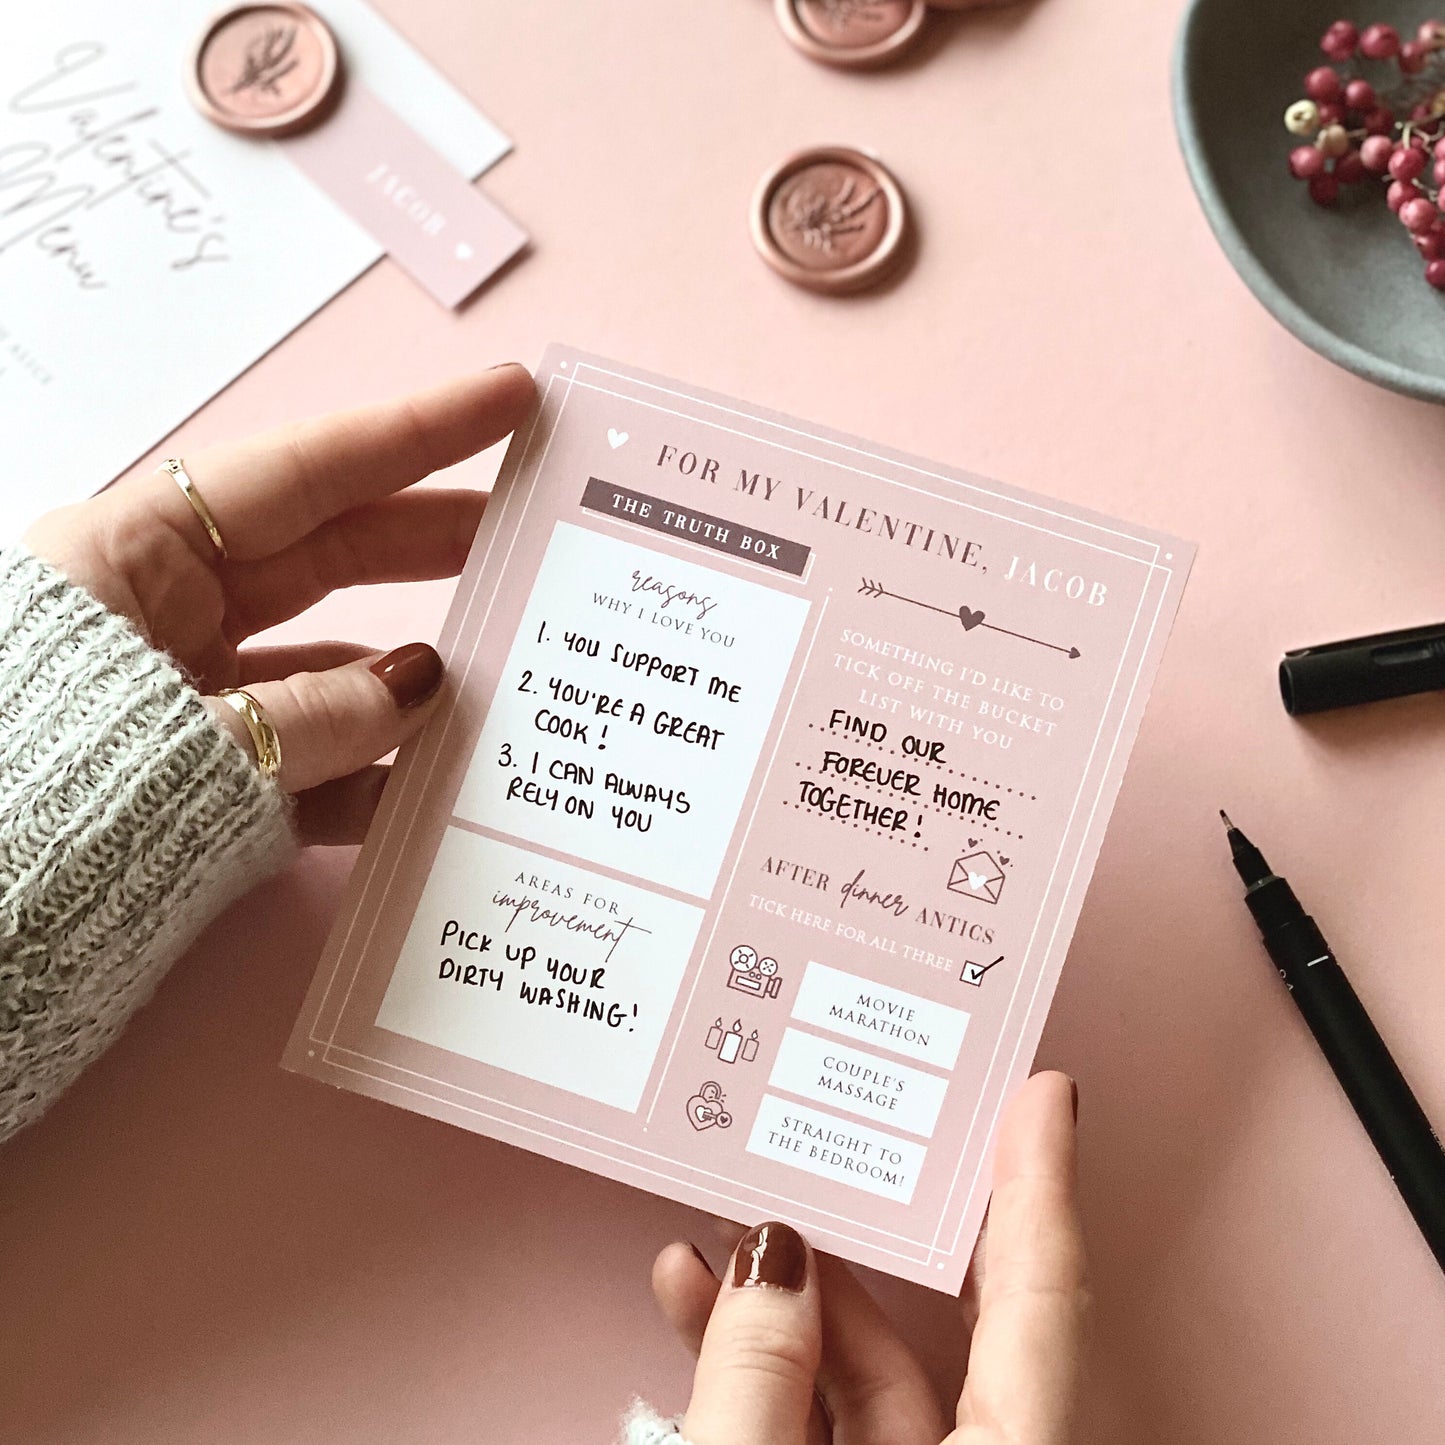 Valentine's
Menu
JACOB
FOR MY VALENTINE, JACOB
THE TRUTH BOX
reasons
WHY I LOVE YOU
1. YOU SUPPORT ME
2. YOU'RE A GREAT
COOK!
3. I CAN ALWAYS
RELY ON YOU
AREAS FOR
improvement
PICK UP YOUR
DIRTY WASHING!
SOMETHING I'D LIKE TO
TICK OFF THE BUCKET
LIST WITH YOU
FIND OUR
FOREVER HOME
TOGETHER!
AFTER dinner ANTICS
TICK HERE FOR ALL THREE
MOVIE
MARATHON
COUPLE'S
MASSAGE
STRAIGHT TO
THE BEDROOM!